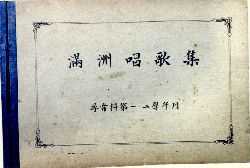 滿洲唱歌集
尋常科第一二學年用